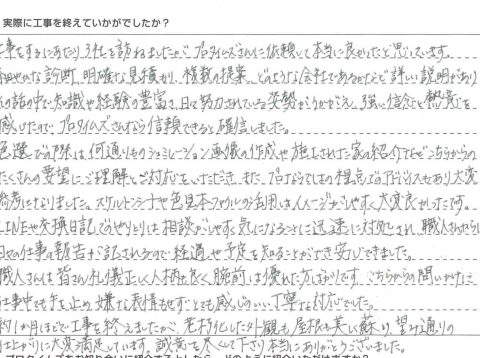 実際に工事を終えていかがでしたか？
工事をするにあたり、3社を訪ねましたが、プロタイムズさんに依頼して本当に良かったと思っています。
細やかな診断、明確な見積もり、複数の提案、どのような会社であるかなど詳しい説明があり
の話の中で知識や経験の豊富さ、日々努力されている姿勢がうかがえ、強い信念と熱意を
感じたので、プロタイムズさんなら信頼できると確信しました。
色選びの際は、何通りものシュミレーション画像の作成や施工された家の紹介など、こちらからの
たくさんの要望にご理解とご対応をいただき、また、プロならではの視点でのアドバイスもあり大変
参考になりました。スケルトンシートや色見本ファイルの活用はイメージがしやすく大変良かったです。
LINEや交換日記でのやりとりは相談がしやすく気になることに迅速に対応され、職人さんからも
日々の仕事の報告が記されるので経過や予定を知ることができ安心できました。
職人さんは皆さん礼儀正しく人柄も良く腕前は優れた方ばかりです。こちらからの問いかけに
仕事中でも手を止め嫌な表情もせずとても感じのいい丁寧な対応でした。
約1か月ほどで工事を終えましたが、老朽化した外観も屋根も美しく蘇り、望み通りの
仕上がりに大変満足しています。誠意を尽くして下さり本当にありがとうございました。